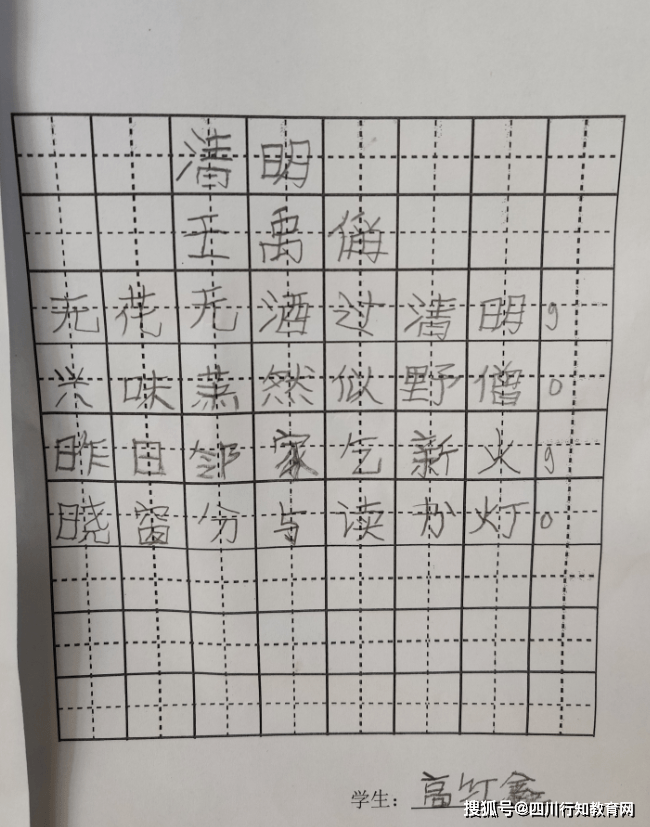 清明
王禹偁
无花无酒过清明，
兴味萧然似野僧。
昨日邻家乞新火，
晓窗分与读书灯。
学生：高红鑫
搜狐号@四川行知教育网